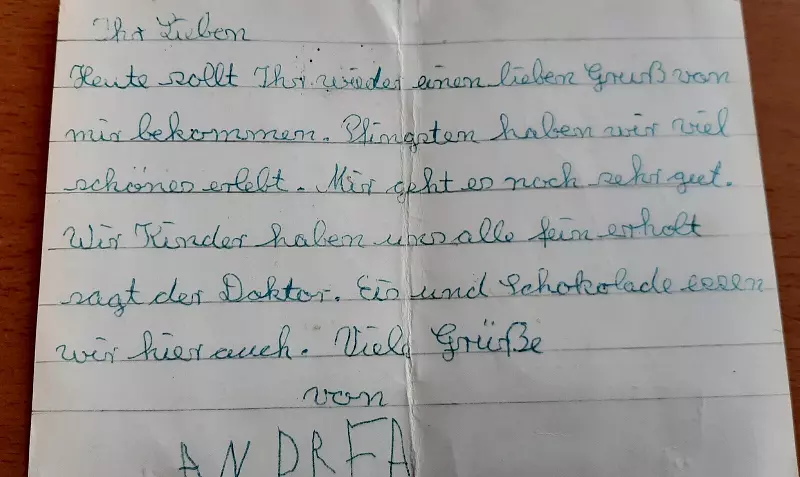 Ihr Lieben
Heute sollt Ihr wieder einen lieben Gruß von
mir bekommen. Pfingsten haben wir viel
schönes erlebt. Mir geht es noch sehr gut.
Wir Kinder haben uns alle fein erholt
sagt der Doktor. Eis und Schokolade essen
wir hier auch. Viele Grüße
von
ANDREA